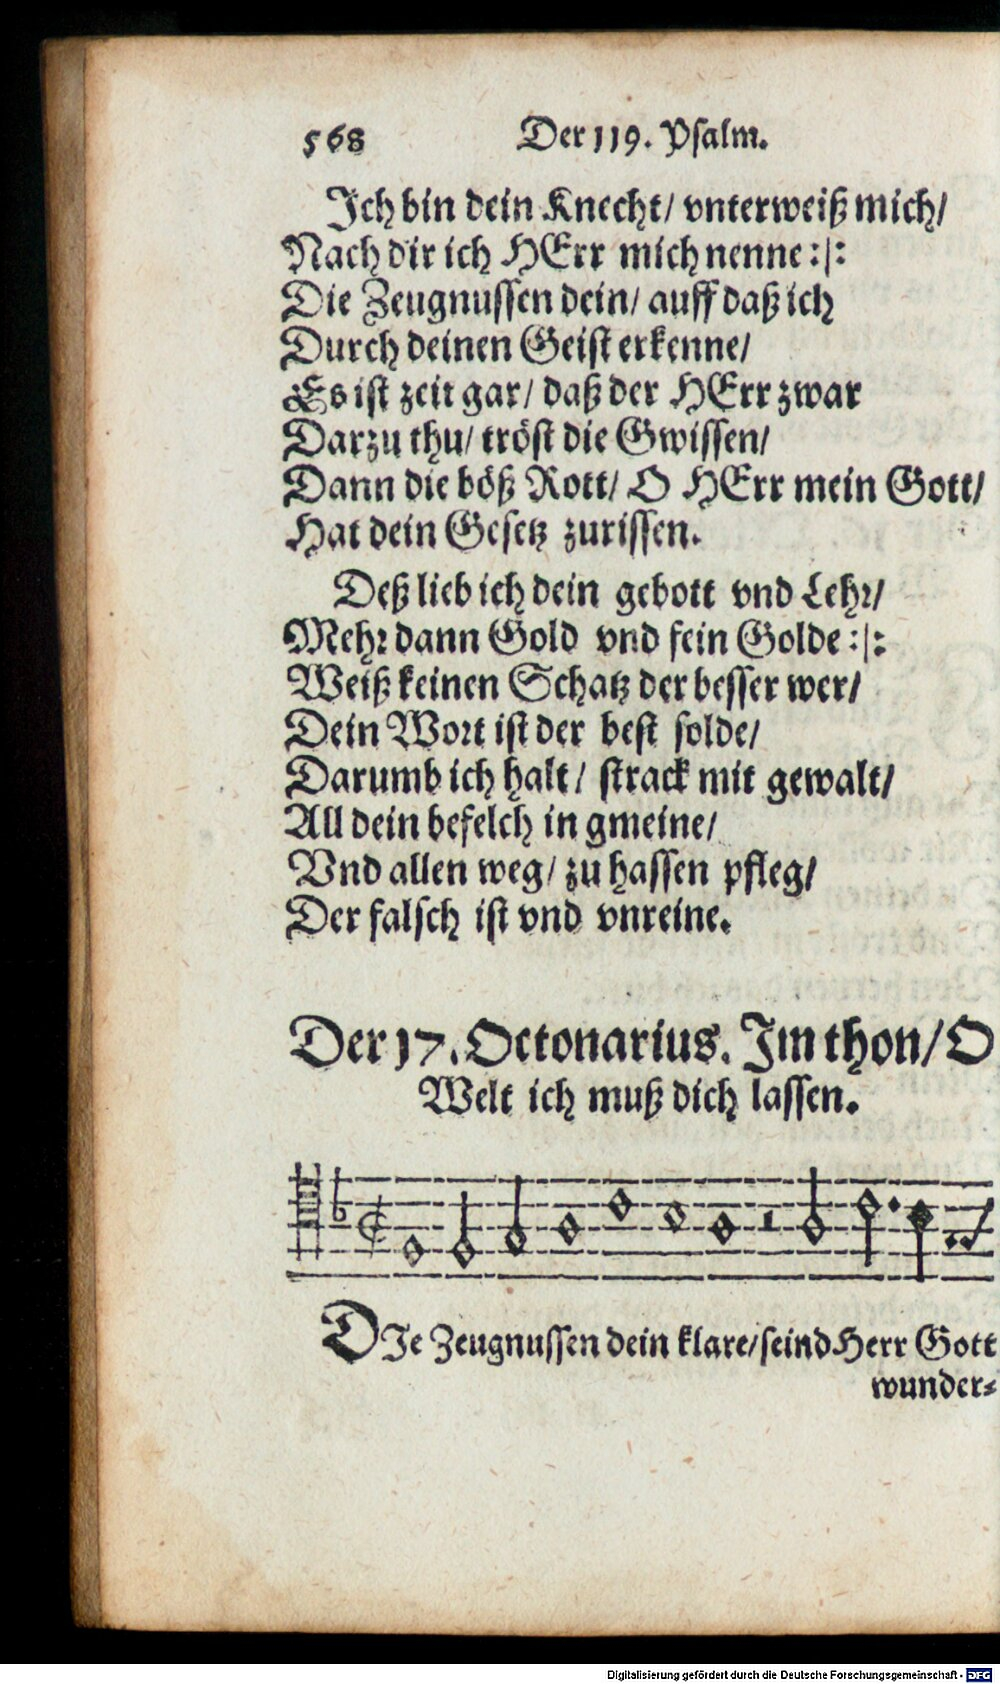 568 Der 119. Psalm.
Ich bin dein Knecht/ vnterweiß mich/
Nach dir ich HErr mich nenne :|:
Die Zeugnussen dein/ auff daß ich
Durch deinen Geist erkenne/
Es ist zeit gar/ daß der HErr zwar
Darzu thu/ tröst die Gwissen/
Dann die böß Rott/ O HErr mein Gott/
Hat dein Gesetz zurissen.
Deß lieb ich dein gebott vnd Lehr/
Mehr dann Gold vnd fein Golde :|:
Weiß keinen Schatz der besser wer/
Dein Wort ist der best solde/
Darumb ich halt/ strack mit gewalt/
All dein befelch in gmeine/
Vnd allen weg/ zu hassen pfleg/
Der falsch ist vnd vnreine.
Der 17. Octonarius. Im thon/ O
Welt ich muß dich lassen.
DIe Zeugnussen dein klare/ seind Herr Gott
wunder-
Digitalisierung gefördert durch die Deutsche Forschungsgemeinschaft - DFG